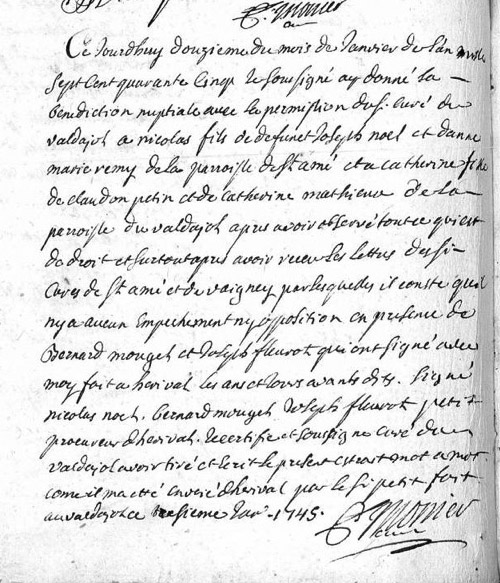 C. monier
Ce Jourdhuy douzieme du mois de Janvier de Lan mille
sept Cent quarante Cinq Je soussigné ay donné La
benediction nuptiale avec La permission du s. Curé du
valdajol a nicolas fils de defunct Joseph noel et danne
marie remy de la parroisse de st amé et a catherine fille
de claudon petin et de catherine mathieu de La
parroisse du valdajol apres avoir observé tout ce qui est
de droit et surtout apres avoir receu Les Lettres des si
Cures de st amé et de vaigney par Lesquelles il conste quil
ny a aucun Empechement ny opposition en presence de
Bernard mougel et Joseph fleurot qui ont signé avec
moy fait a herival Les ans et Jours avants dits. signé
nicolas noel. bernard mougel Joseph fleurot petit
procureur dherival. Je certifie et soussigne curé du
valdajol avoir tiré et Ecrit Le present Extrait mot a mot
come il ma etté envoié dherival par le si petit fait
au valdajol ce treisieme Janr. 1745.
C. monier